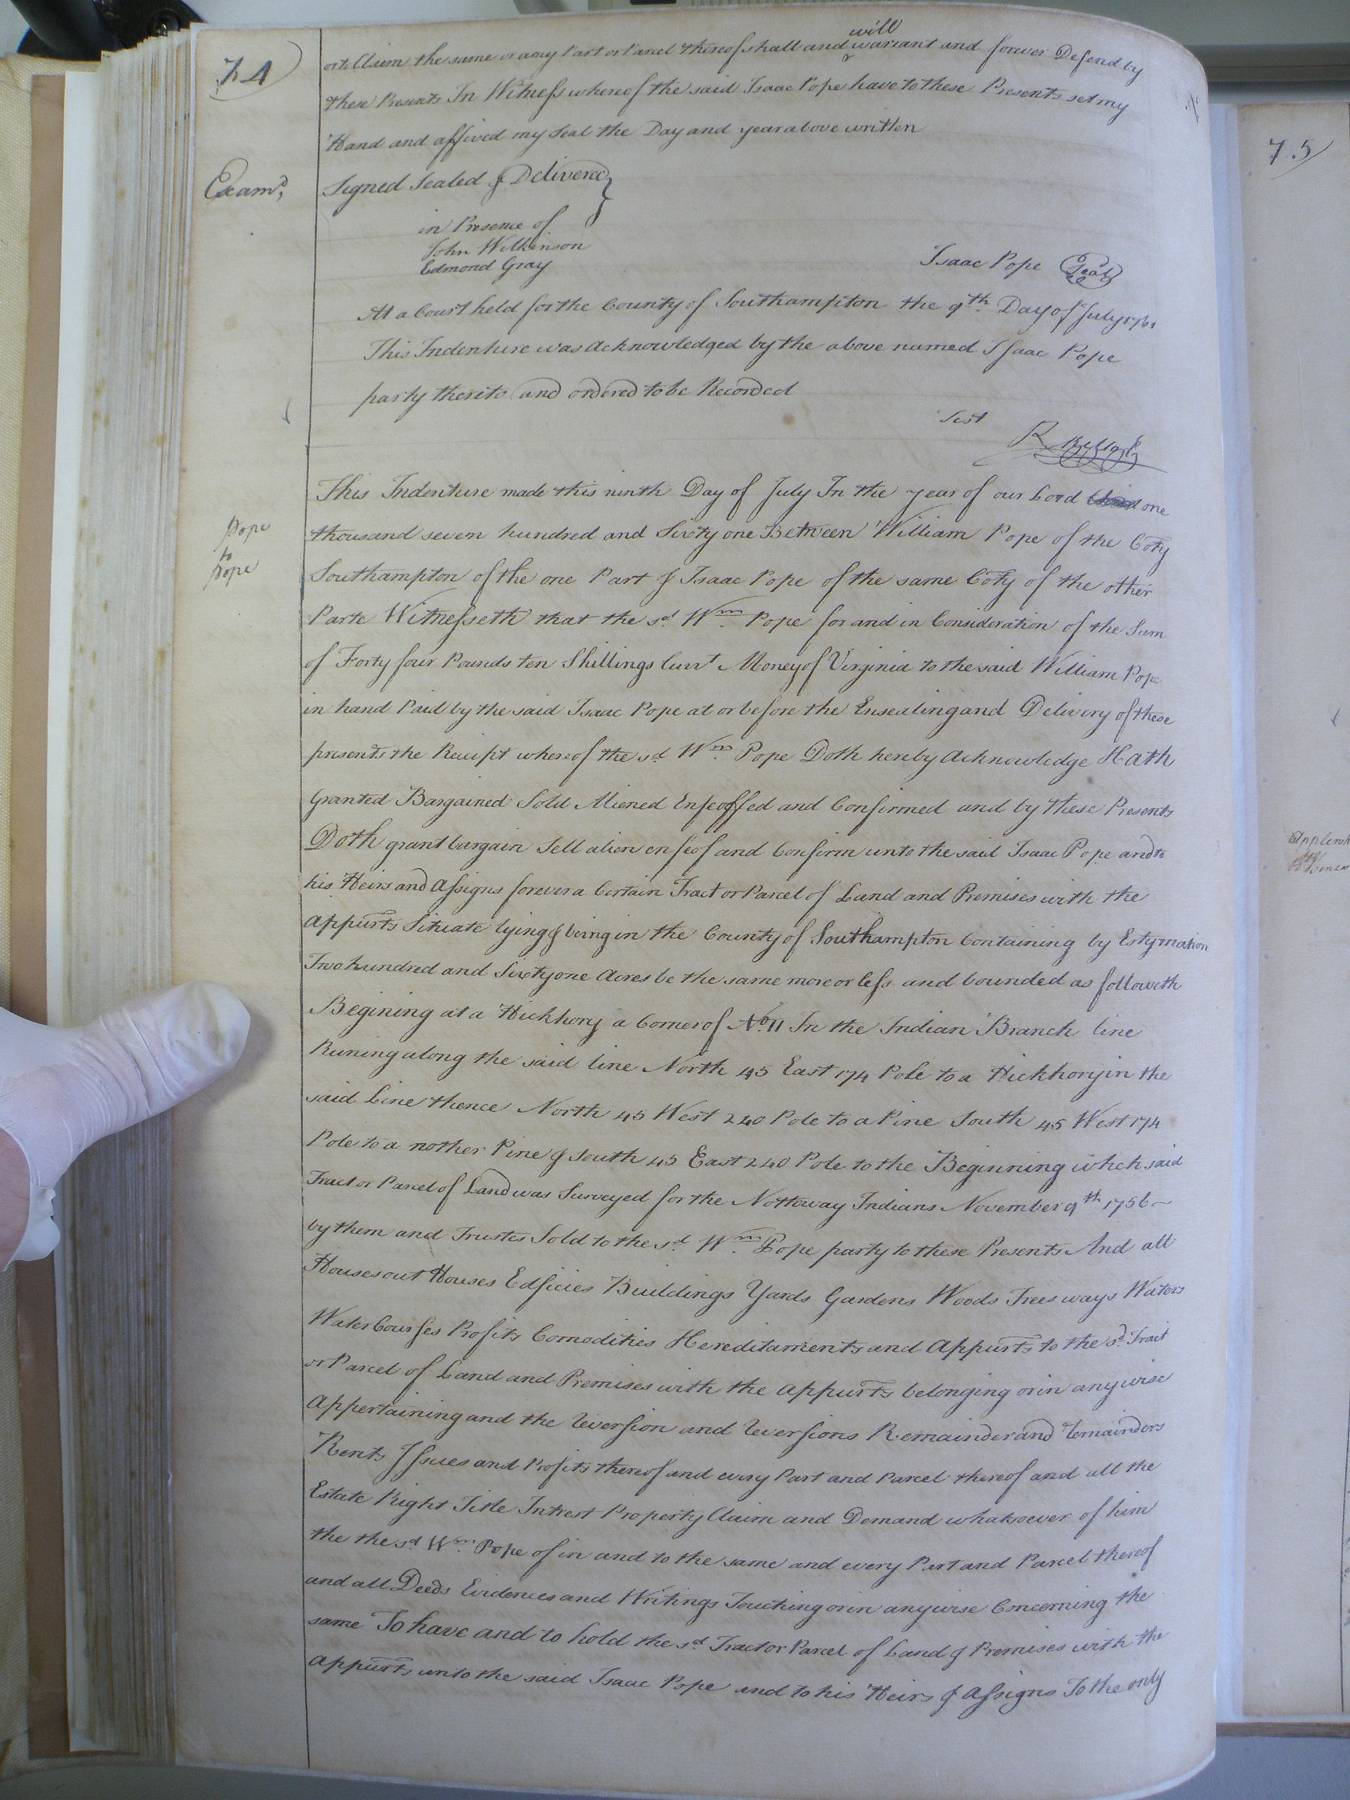 74
will
or to Claim the same or any Part or Parcel thereof shall and warrant and forever Defend by
these Presents In Witness whereof the said Isaac Pope have to these Presents set my
Hand and affixed my Seal the Day and year above written
Exam.d
Signed Sealed & Delivered
in Presence of
John Wilkinson
Edmond Gray
Isaac Pope Seal
At a Court held for the County of Southampton the 9th Day of July 1761
This Indenture was Acknowledged by the above named Isaac Pope
party thereto and ordered to be Recorded
Test
R
Pope
to
Pope
This Indenture made this ninth Day of July In the year of our Lord one
thousand seven hundred and Sixty one Between William Pope of the Coty
Southampton of the one Part & Isaac Pope of the same Coty of the other
Parte Witnesseth that the sd. Wm. Pope for and in Consideration of the Sum
of Forty four Pounds ten Shillings Currt Money of Virginia to the said William Pope
in hand Paid by the said Isaac Pope at or before the Ensealing and Delivery of these
presents the Receipt whereof the sd Wm. Pope Doth hereby Acknowledge Hath
Granted Bargained Sold Aliened Enfeoffed and Confirmed and by these Presents
Doth grant bargain Sell alien enfeof and Confirm unto the said Isaac Pope and to
his Heirs and Assigns forever a Certain Tract or Parcel of Land and Premises with the
Appurts Situate lying & being in the County of Southampton Containing by Estymation
Two hundred and Sixty one Acres be the same more or less and bounded as followeth
Begining at a Hickhory a Corner of No. 11 In the Indian Branch line
Runing along the said line North 45 East 174 Pole to a Hickhory in the
said Line thence North 45 West 240 Pole to a Pine South 45 West 174
Pole to a nother Pine & South 45 East 240 Pole to the Beginning which said
Tract or Parcel of Land was Surveyed for the Nottoway Indians November 9th 1756
by them and Trustes Sold to the sd. Wm. Pope party to these Presents And all
Houses out Houses Edficies Buildings Yards Gardens Woods Trees ways Waters
Water Courses Profits Comodities Hereditaments and Appurts to the sd. Trait
or Parcel of Land and Premises with the Appurts belonging or in any wise
Appertaining and the Reversion and Reversions Remainder and Remainders
Rents Issues and Profits thereof and every Part and Parcel thereof and all the
Estate Right Title Intrest Property Claim and Demand whatsoever of him
the the sd Wm. Pope of in and to the same and every Part and Parcel thereof
and all Deeds Evidences and Writings Touching or in any wise Concerning the
same To have and to hold the sd Tract or Parcel of Land & Premises with the
Appurts unto the said Isaac Pope and to his Heirs & Assigns To the only
75